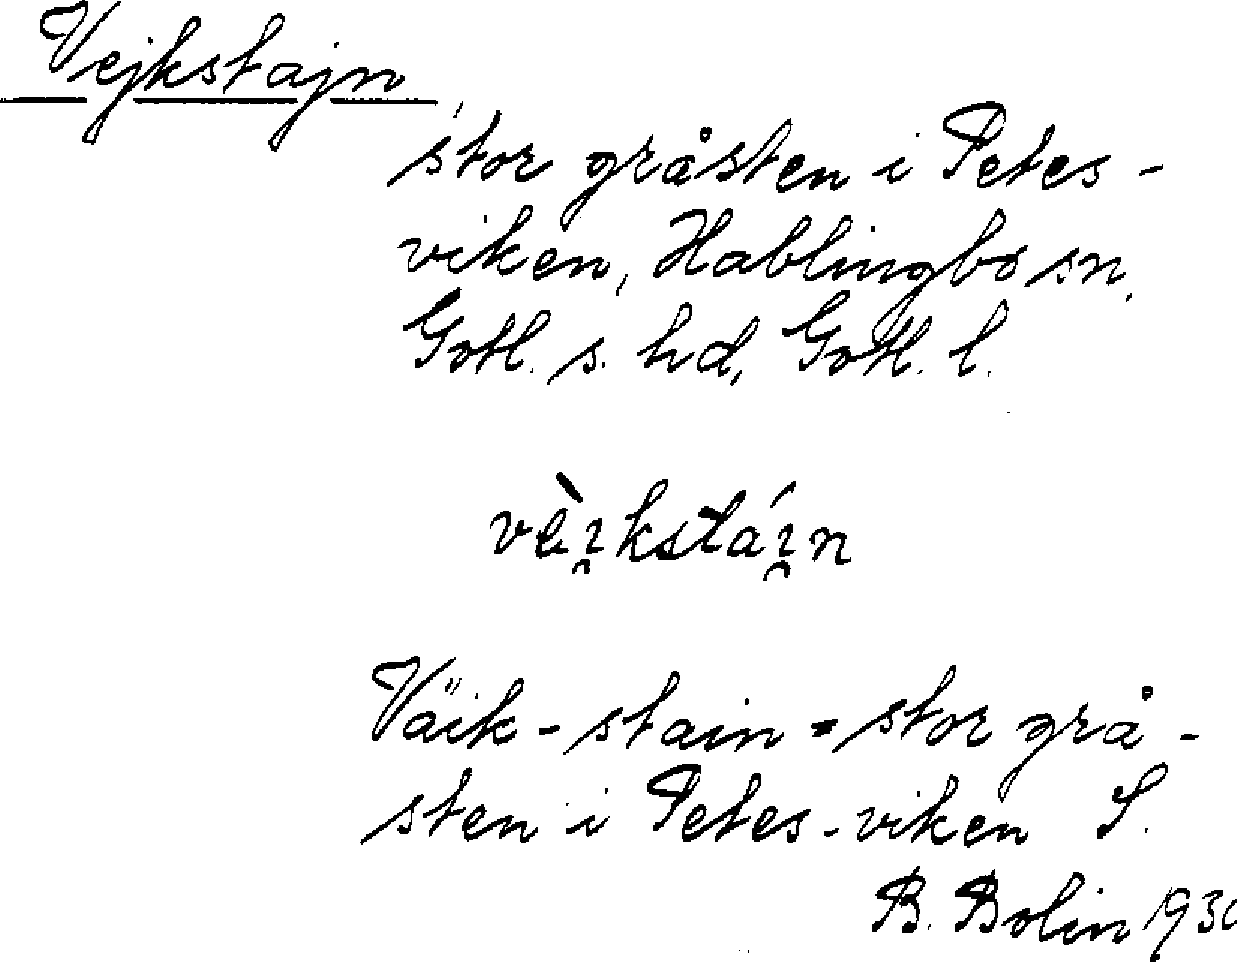 Vejkstajn,
stor gråsten i Petes-
viken, Hablingbo sn,
Gotl. s. hd, Gotl. l.
vèi̯kstái̯n
Väik-stain = stor grå-
sten i Petes-viken S.
B. Bolin 1930